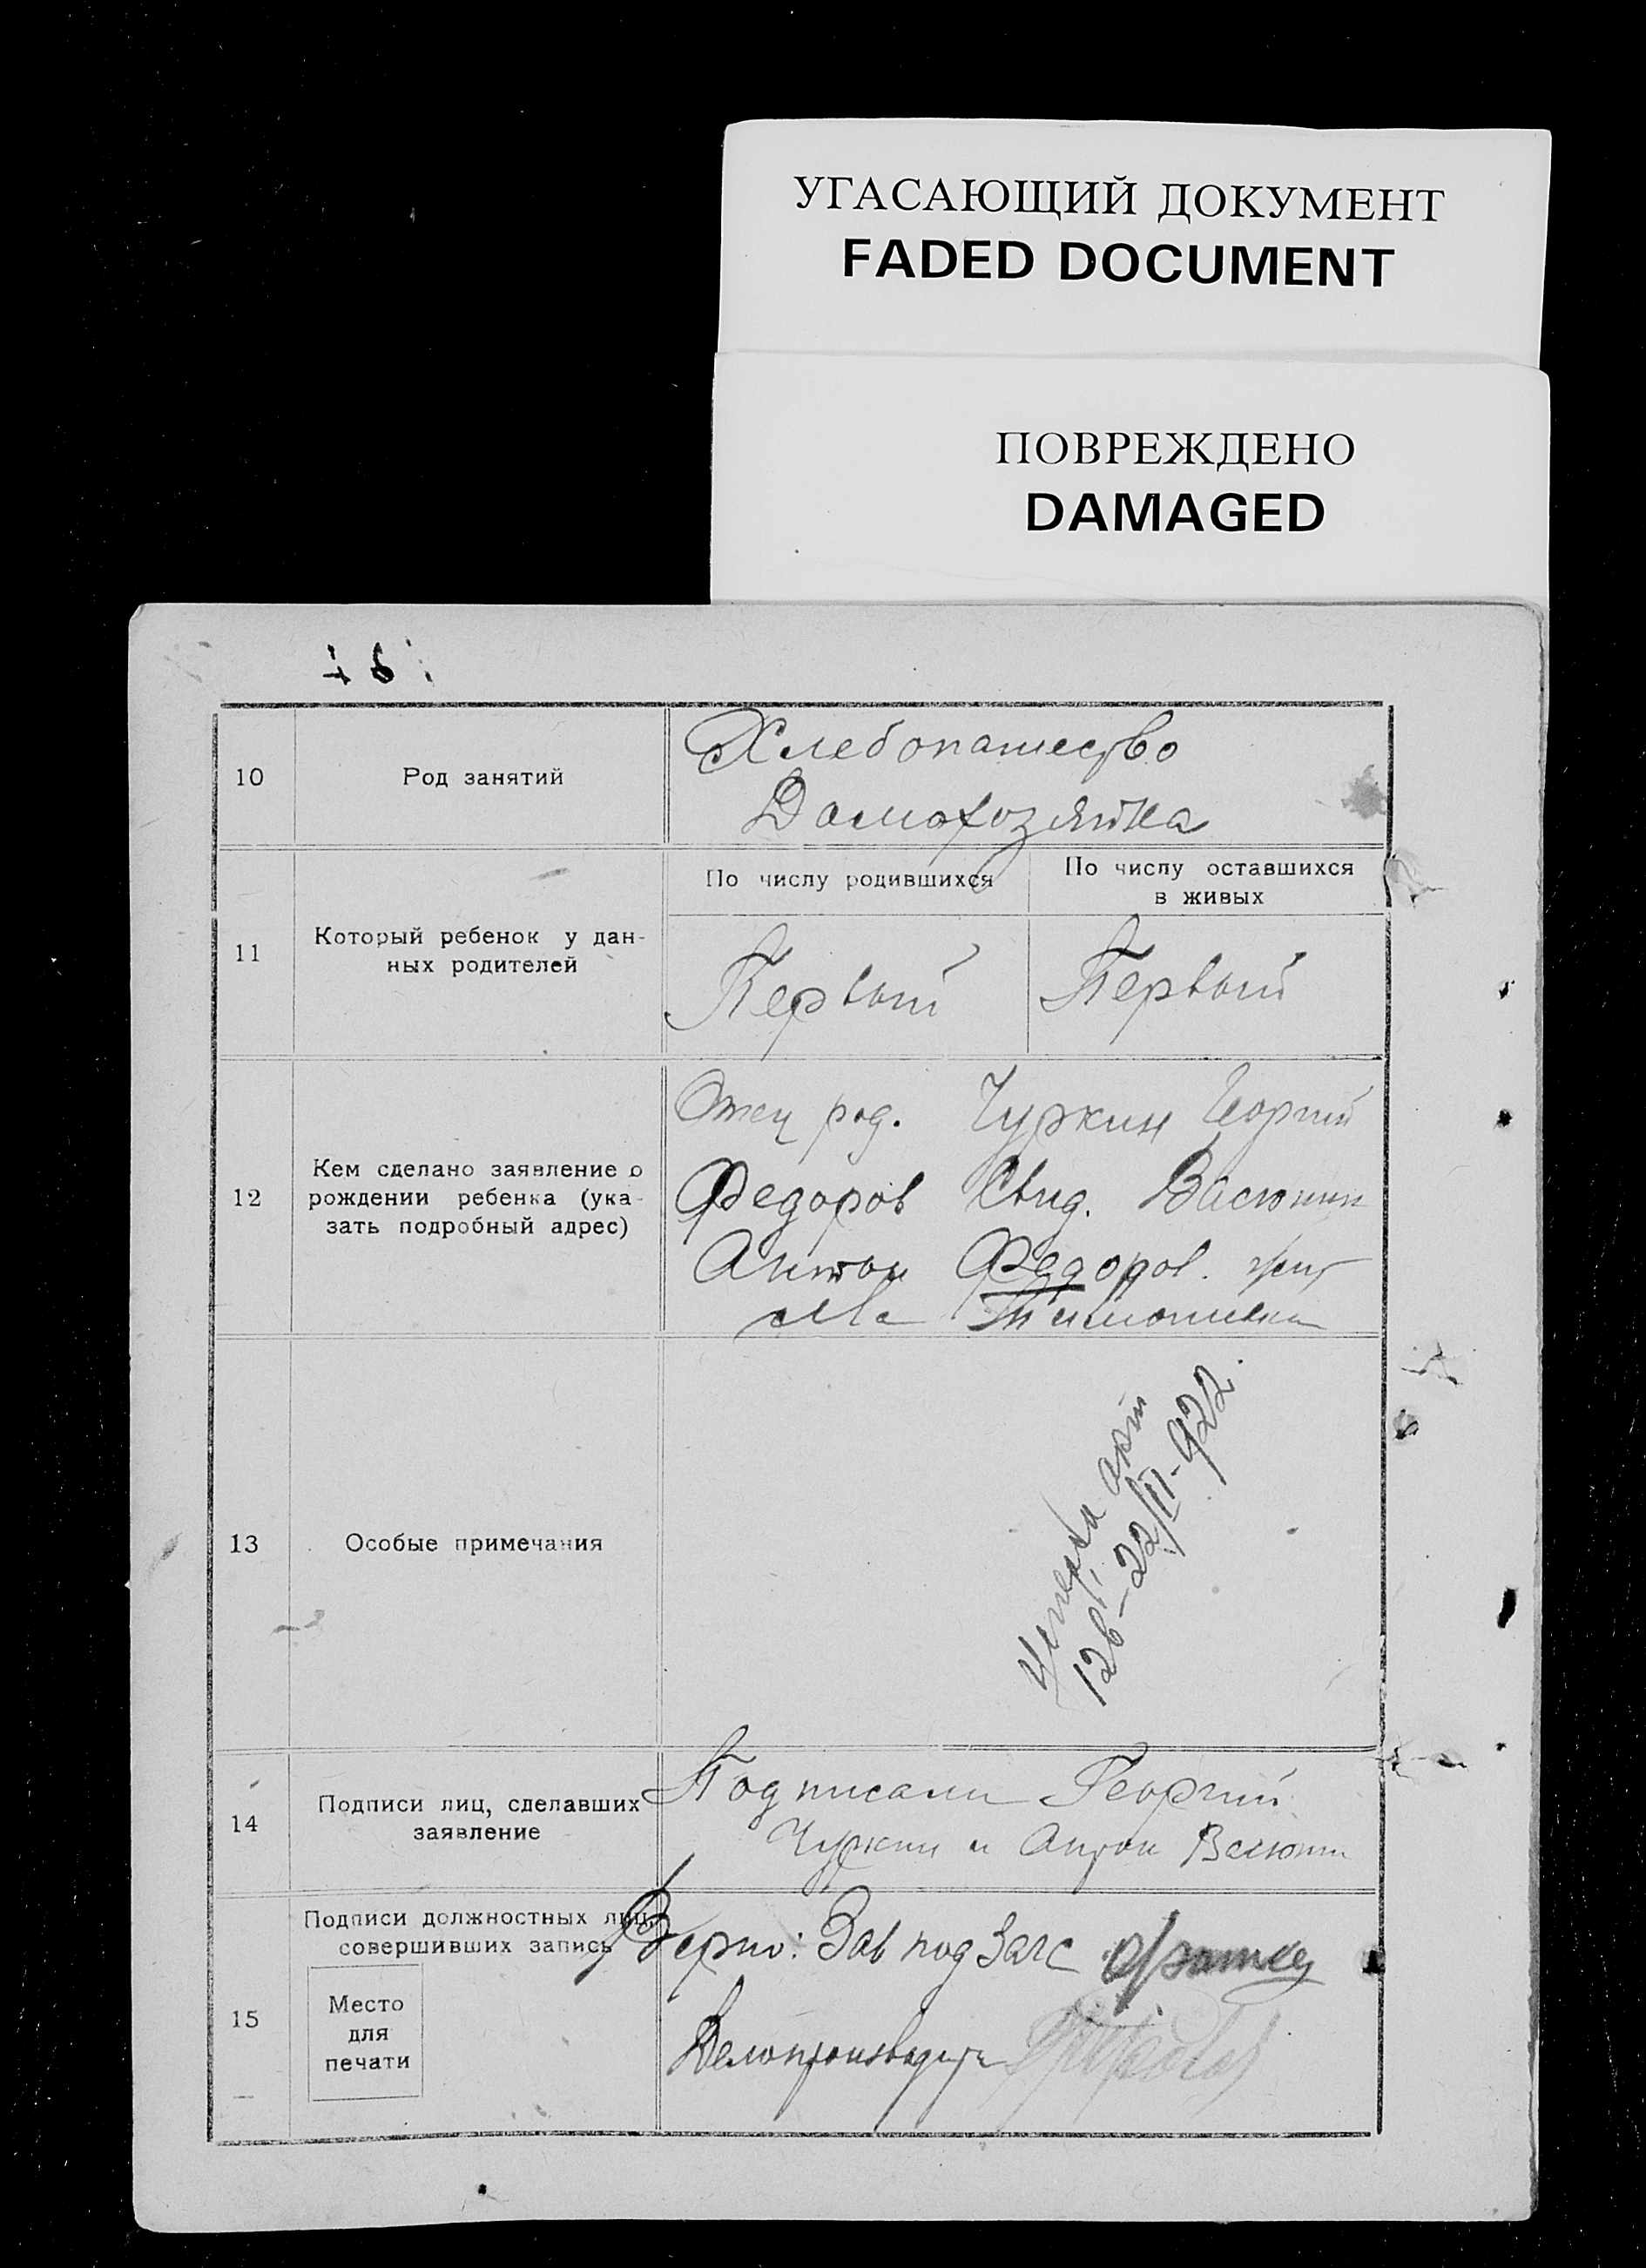 УГАСАЮЩИЙ ДОКУМЕНТ
FADED DOCUMENT
ПОВРЕЖДЕНО
DAMAGED
10
Род занятий
Хлебопашество
Домохозяйка
11
Который ребенок у дан-
ных родителей
По числу родившихся
По числу оставшихся
в живых
Первый
Первый
12
Кем сделано заявление о
рождении ребенка (ука-
зать подробный адрес)
Отец род. Чуркин Георгий
Федоров Свид. Васюнин
Антон Федоров. жит
13
Особые примечания
126-22/II-922.
14
Подписи лиц, сделавших
заявление
Подписали Георгий
Чуркин и Антон Васюнин
15
Подписи должностных лиц,
совершивших запись
Место
для
печати
Верно: Зав подЗагс
Делопроизводитель